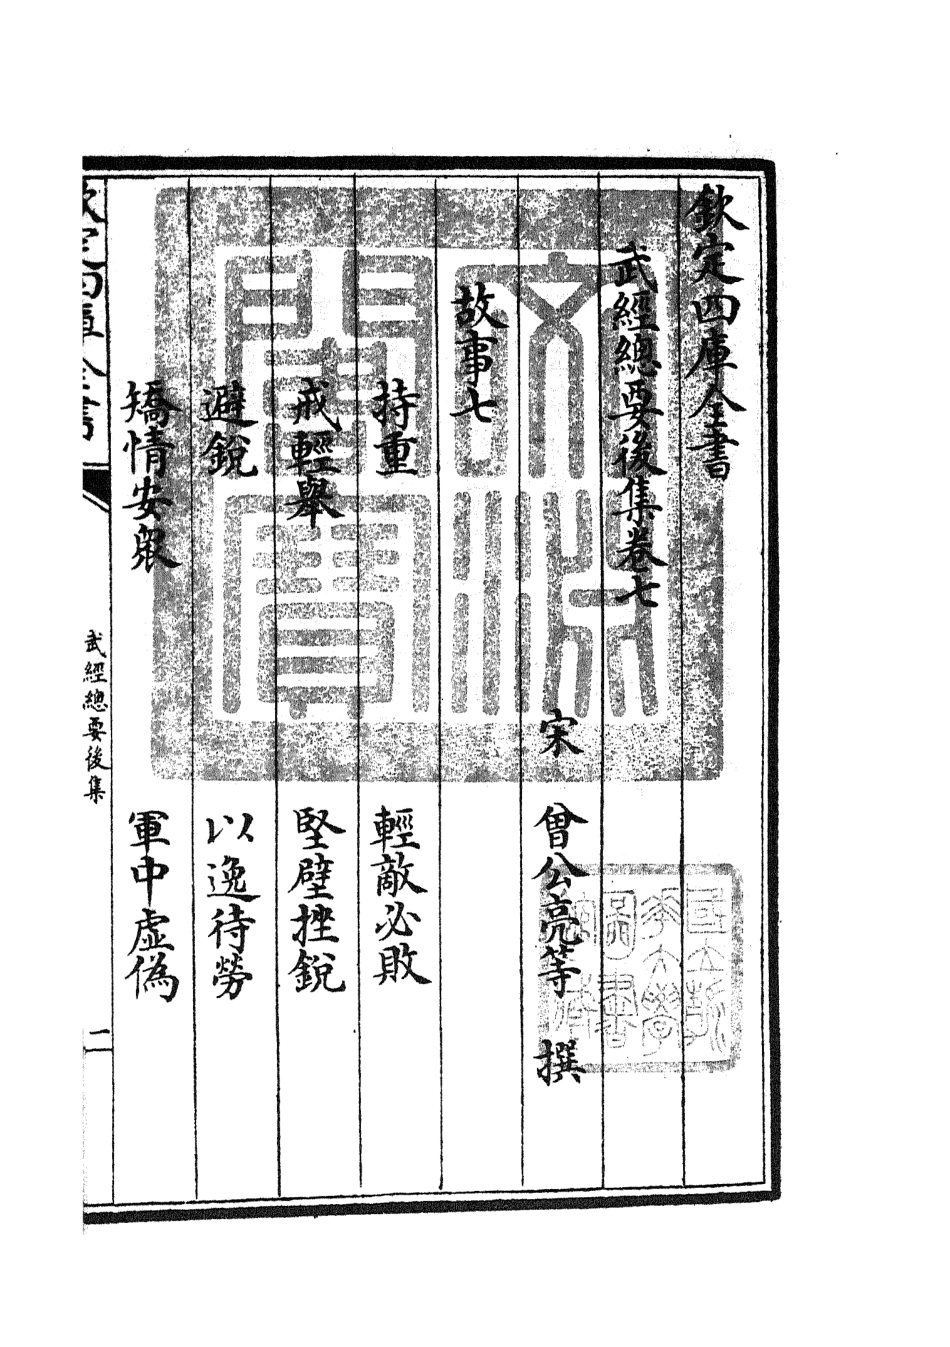 欽定四庫全書
武經總要後集卷七
宋 曾公亮等 撰
故事七
持重 輕敵必敗
戒輕舉 堅壁挫銳
避銳 以逸待勞
矯情安衆 軍中虛偽
欽定四庫全書 武經總要後集 一
文淵閣寶
國立浙江大學圖書館藏